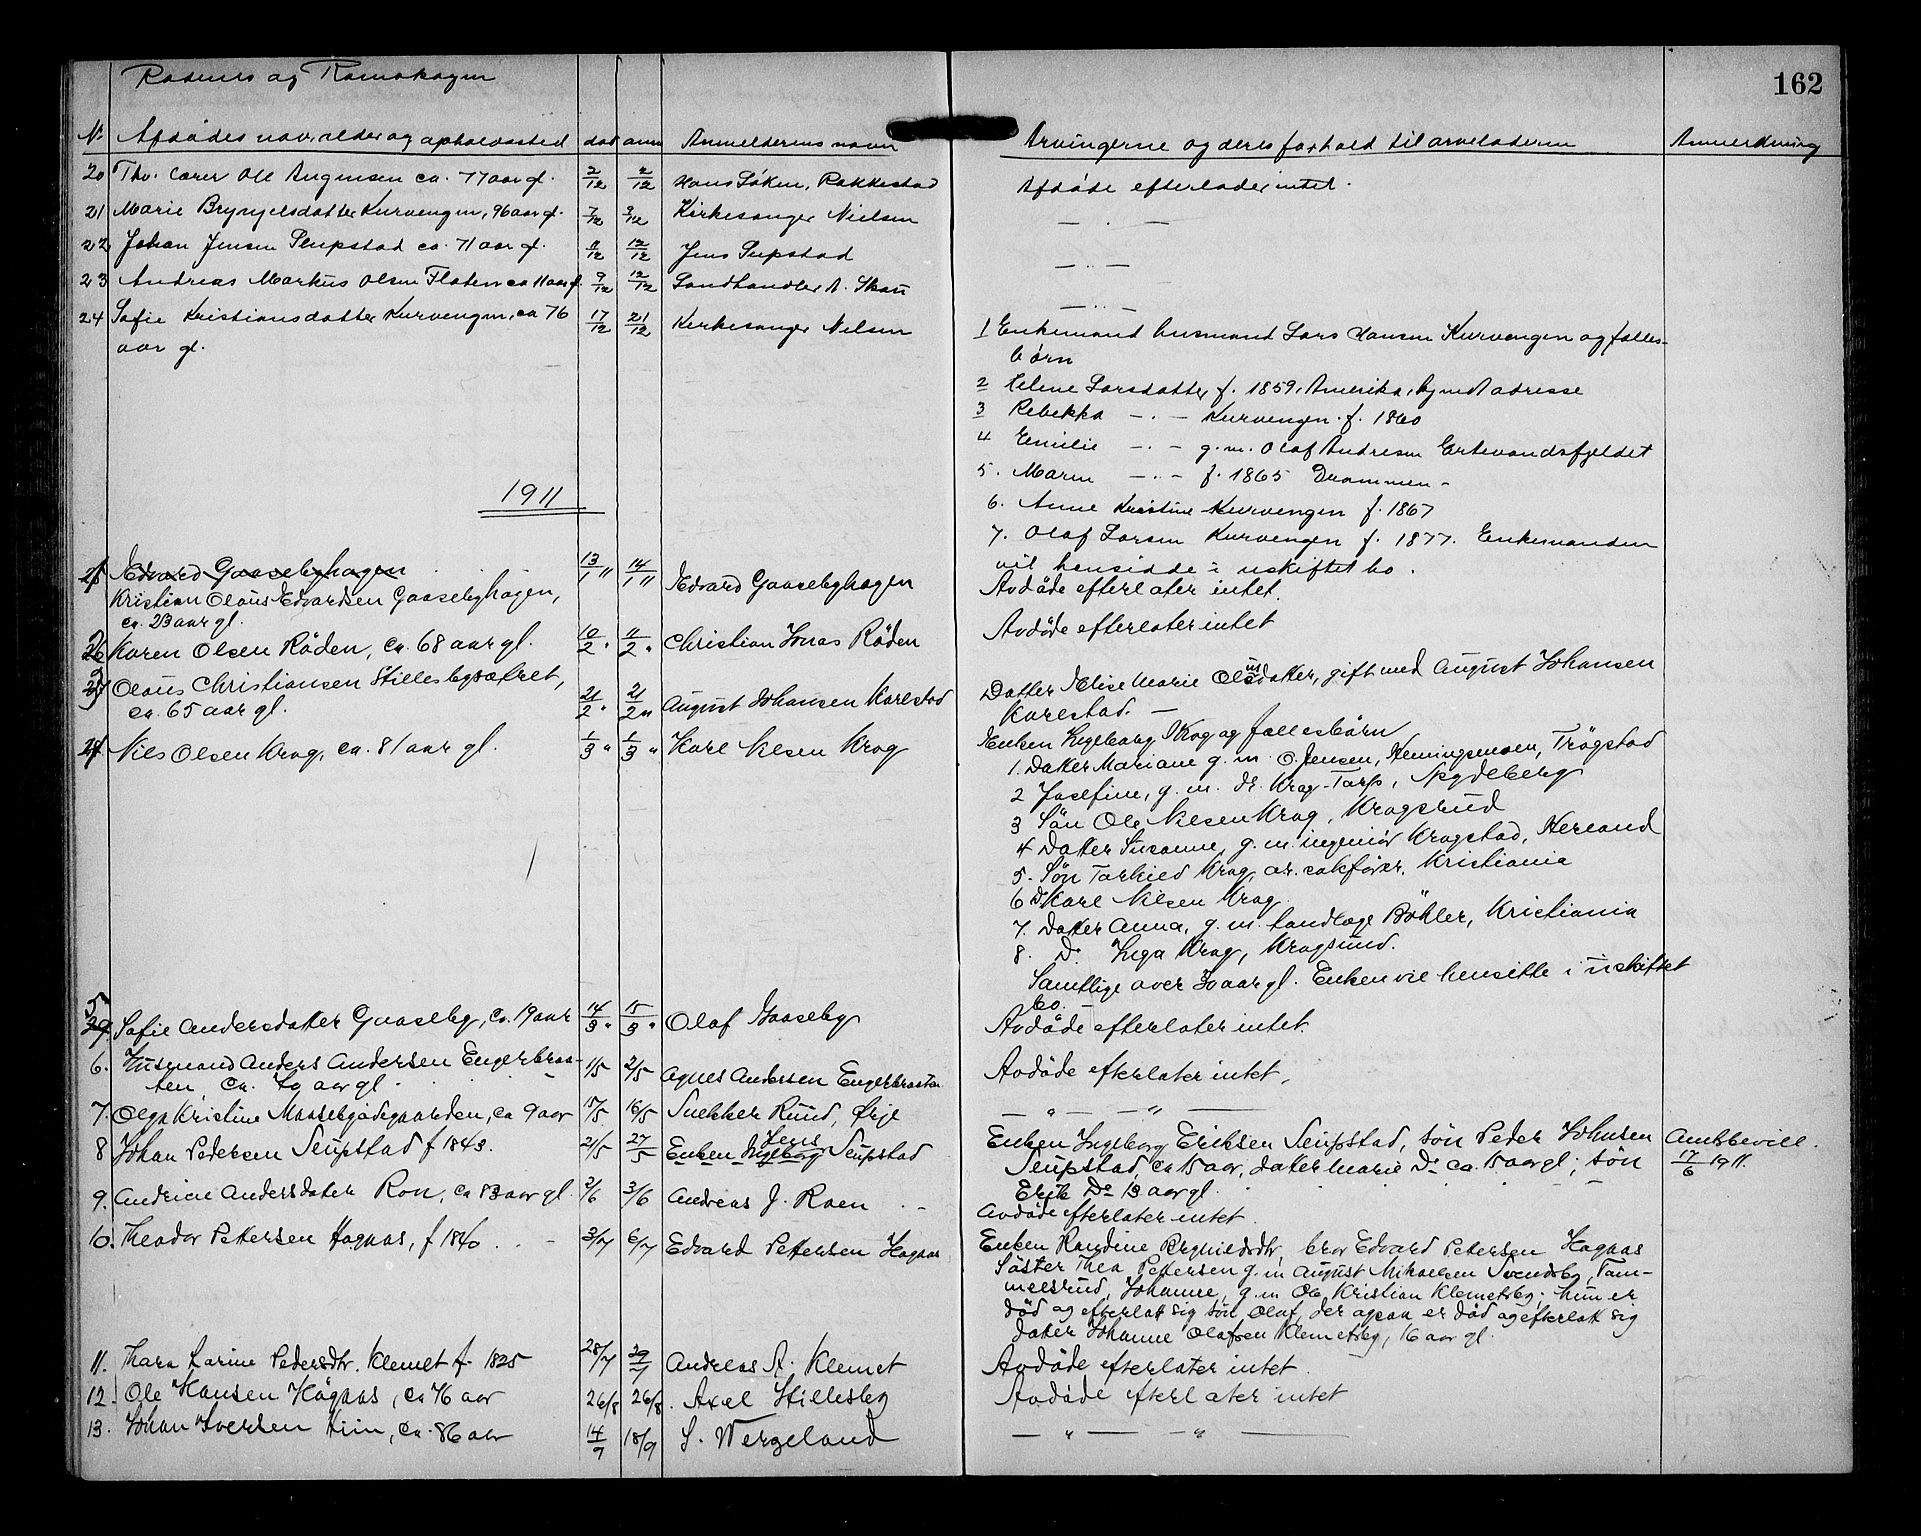 Rødenes og Rømskogen
162
Nr Afdødes navn, alder og opholdssted død anm Anmelderens navn Arvingerne og deres forhold til arveladeren Anmerkning
20 Fhv. lærer Ole ca. 77 aar gl. 2/12 2/12 Hans Søken, Rakkestad Afdøde efterlader intet.
21 Marie Bryngelsdatter Kurvengen, 96 aar gl. 7/12 9/12 Kirkesanger Nielsen — . —
22 Johan Jensen ca. 71 aar gl. 11/12 12/12 Jens — .. —
23 Andreas Markus Olsen Flaten ca 11 aar gl. 9/12 12/12 Landhandler A. Skau — .. —
24 Sofie Kristiansdatter Kurvengen, ca 76 17/12 21/12 Kirkesanger Nilsen
aar gl.
1 Enkemand husmand Lars Hansen Kurvengen og fælles-
børn
2 Helene Larsdatter f. 1859, Amerika, ukjendt adresse
3 Rebekka — . — Kurvengen f. 1860
4 Emilie — . — g. m. Olaf Andresen Ertevandsfjeldet
5. Maren — . — f. 1865 Drammen -
6. Anne Kristine Kurvengen f. 1867
7. Olaf Larsen Kurvengen f. 1877. Enkemanden
vil hensidde i uskiftet bo.
1911
Edvard Gaasebyhagen
Kristian Olaus Edvardsen Gaasebyhagen, 13/1 " 14/1 " Edvard Gaasebyhagen Avdøde efterlater intet.
ca. 23 aar gl.
26 Karen Olsen Røden, ca. 68 aar gl. 10/2 " 11/2 " Christian Jonas Røden Avdøde efterlater intet
Olaus Christiansen Stillesbysætret, 21/2 " 21/2 " August Johansen Karlstad Datter Elise Marie Olausdatter, gift med August Johansen
ca. 65 aar gl. Karlstad. —
Nils Olsen Krog, ca. 81 aar gl. 1/3 " 1/3 " Karl Nilsen Krog Enken Ingeborg Krog og fællesbørn
1. Datter Mariane g. m. O. Jensen, Henningsmoen, Trøgstad
2 Josefine, g. m. dr. Krog-Tarp, Spydeberg
3 Søn Ole Nilsen Krog, Krogsrud
4 Datter Susanne, g. m. ingeniør Krogstad, Herland
5. Søn Torkild Krog, or. sakfører, Kristiania
6 Do Karl Nilsen Krog
7. Datter Anna, g. m. tandlæge Bøhler, Kristiania
8. Do Inga Krog, Krogsrud.
Samtlige over 20 aar gl. Enken vil hensitte i uskiftet
bo. —
5 Sofie Andersdatter Gaaseby, ca. 19 aar 14/3 " 15/3 " Olaf Gaaseby Avdøde efterlater intet
6. Husmand Anders Andersen Engerbraa- 1/5 2/5 Agnes Andersen Engerbraaten Avdøde efterlater intet.
ten, ca. aar gl.
7. Olga Kristine ca 9 aar 15/5 16/5 Snekker Ruud, Ørje — " — — " —
8 Johan Pedersen f 1843. 21/5 27/5 Enken Ingeborg Jens Enken Ingeborg Eriksen søn Peder Johnsen Amtsbevill.
ca 15 aar, datter Marie Do ca. 15 aar gl; søn 17/6 1911.
Erik Do 13 aar gl.
9. Andrine Andersdatter Ron, ca 83 aar gl. 2/6 3/6 Andreas J. Roen Avdøde efterlater intet.
10. Theodor Pettersen Hagnas, f 1840. 3/7 6/7 Edvard Pettersen Hagnas Enken Randine bror Edvard Petersen Hagnas
Søster Thea Pettersen g. m August Mikaelsen Svendsby, Tom-
melsrud, Johanne, g. m Ole Kristian Klemetsby; hun er
død og efterlatt sig søn Olaf, der ogsaa er død og efterlatt sig
datter Johanne Olafsen Klemetsby, 16 aar gl.
11. Thora Karine Pedersdtr. Klemet f. 1825 28/7 29/7 Andreas A. Klemet Avdøde efterlater intet
12. Ole Hansen Hagnas, ca 76 aar 26/8 26/8. Axel Stillesby Avdøde efterlater intet
13. Johan Iversen ca. 86 aar 14/9 18/9 S. Wergeland — " — — " —